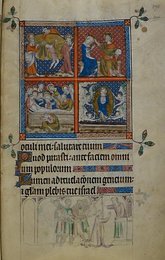 oculi mei: salutare tuum
Quod parasti: ante faciem omni
um populorum
Lumen ad reuelacionem gencium
gliam plebis tue israel